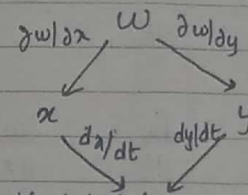 ∂w/∂x W ∂w/∂y
x y
dx/dt dy/dt